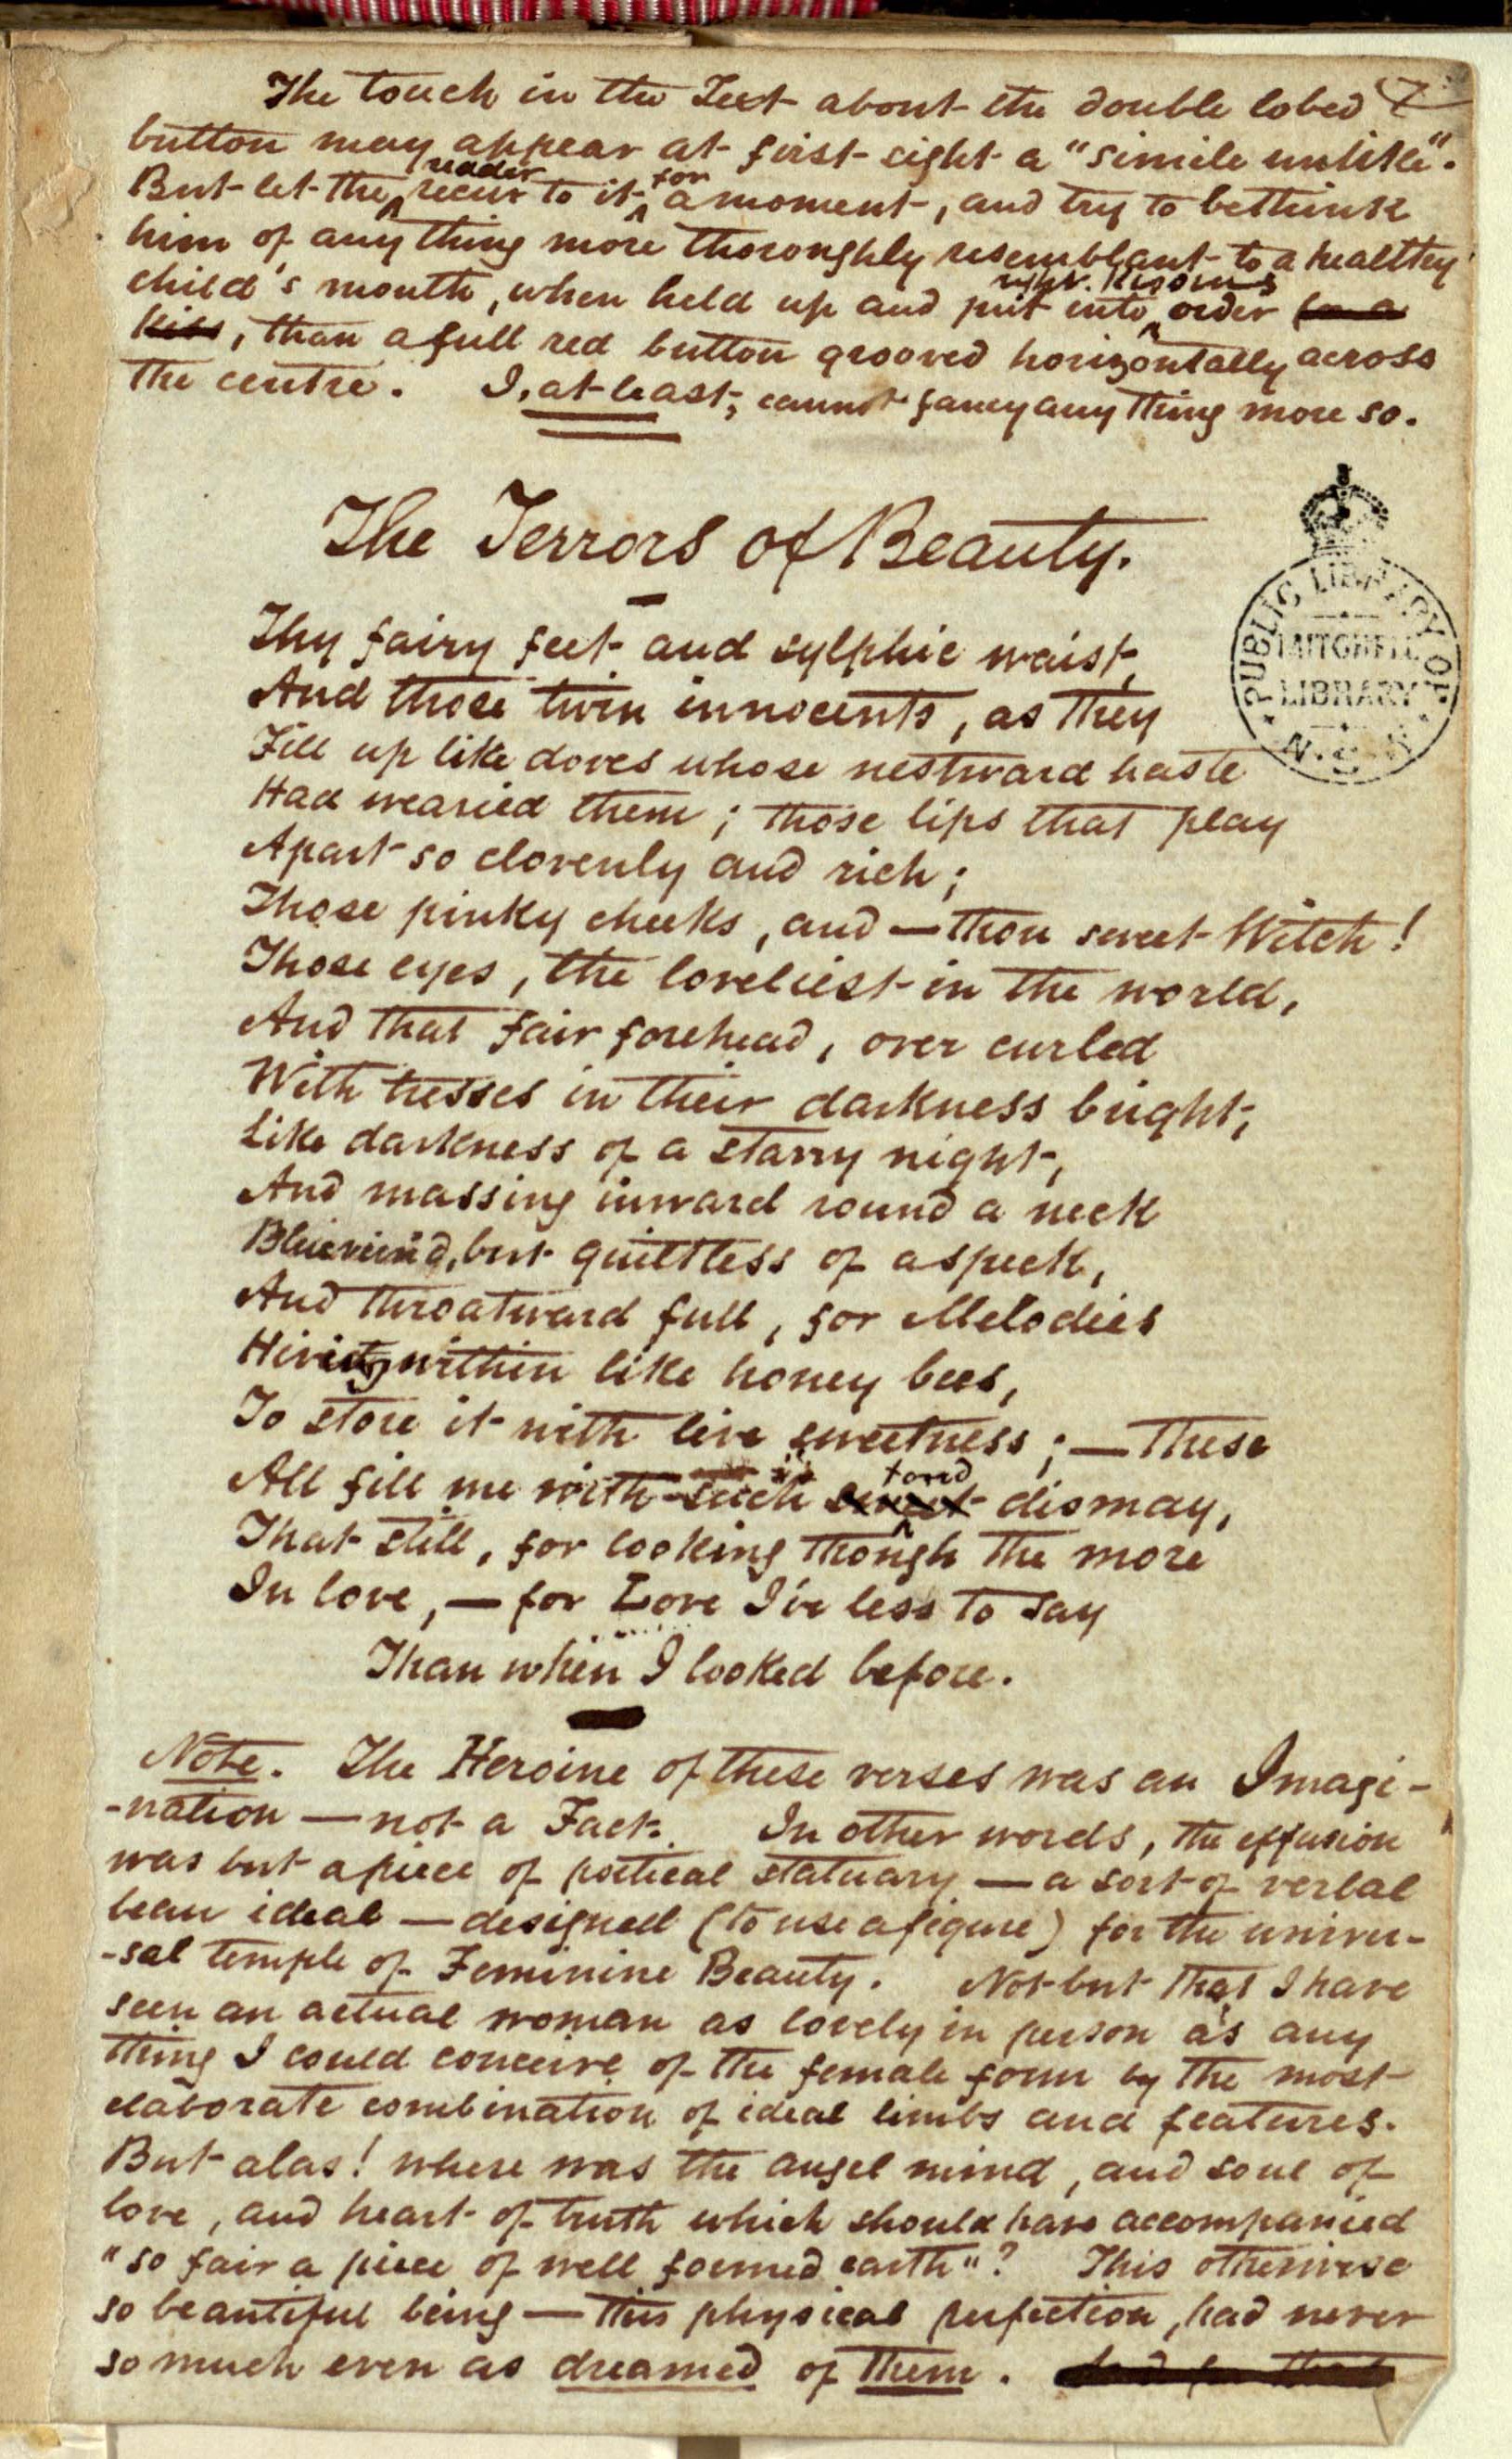 The touch in the Text about the double lobed 7
button may appear at first sight a "simile unlike".
But let the reader recur to it for a moment, and try to bethink
him of any thing more thoroughly resemblant to a healthy
child's mouth, when held up and put into order for a
kiss, than a full red button grooved horizontally across
the centre. I, at least, cannot fancy any thing more so.
The Terrors of Beauty.
Thy fairy feet and sylphic waist,
And those twin innocents, as they
Fill up like doves whose nestward haste
Had wearied them; those lips that play
Apart so clovenly and rich;
Those pinky cheeks, and — thou sweet Witch!
Those eyes, the loveliest in the world,
And that fair forehead, over curled
With tresses in their darkness bright,
Like darkness of a starry night,
And massing inward round a neck
Blueviein'd, but guiltless of a speck,
And throatward full, for Melodies
Hiving within like honey bees,
To store it with live sweetness; — These
All fill me with such sweet fond dismay,
That still, for looking though the more
In love, — for Love I've less to say
Than when I looked before.
Note. The Heroine of these verses was an Imagi-
-nation — not a Fact. In other words, the effusion
was but a piece of poetical statuary — a sort of verbal
beau ideal — designed (to use a figure) for the univer-
-sal temple of Feminine Beauty. Not but that I have
seen an actual woman as lovely in person as any
thing I could conceive of the female form by the most
elaborate combination of ideal limbs and features.
But alas! where was the angel mind, and soul of
love, and heart of truth which should have accompanied
"so fair a piece of well formed earth"? This otherwise
so beautiful being — this physical perfection, had never
so much even as dreamed of them.
PUBLIC LIBRARY OF
MITCHELL
LIBRARY
N.S.W.